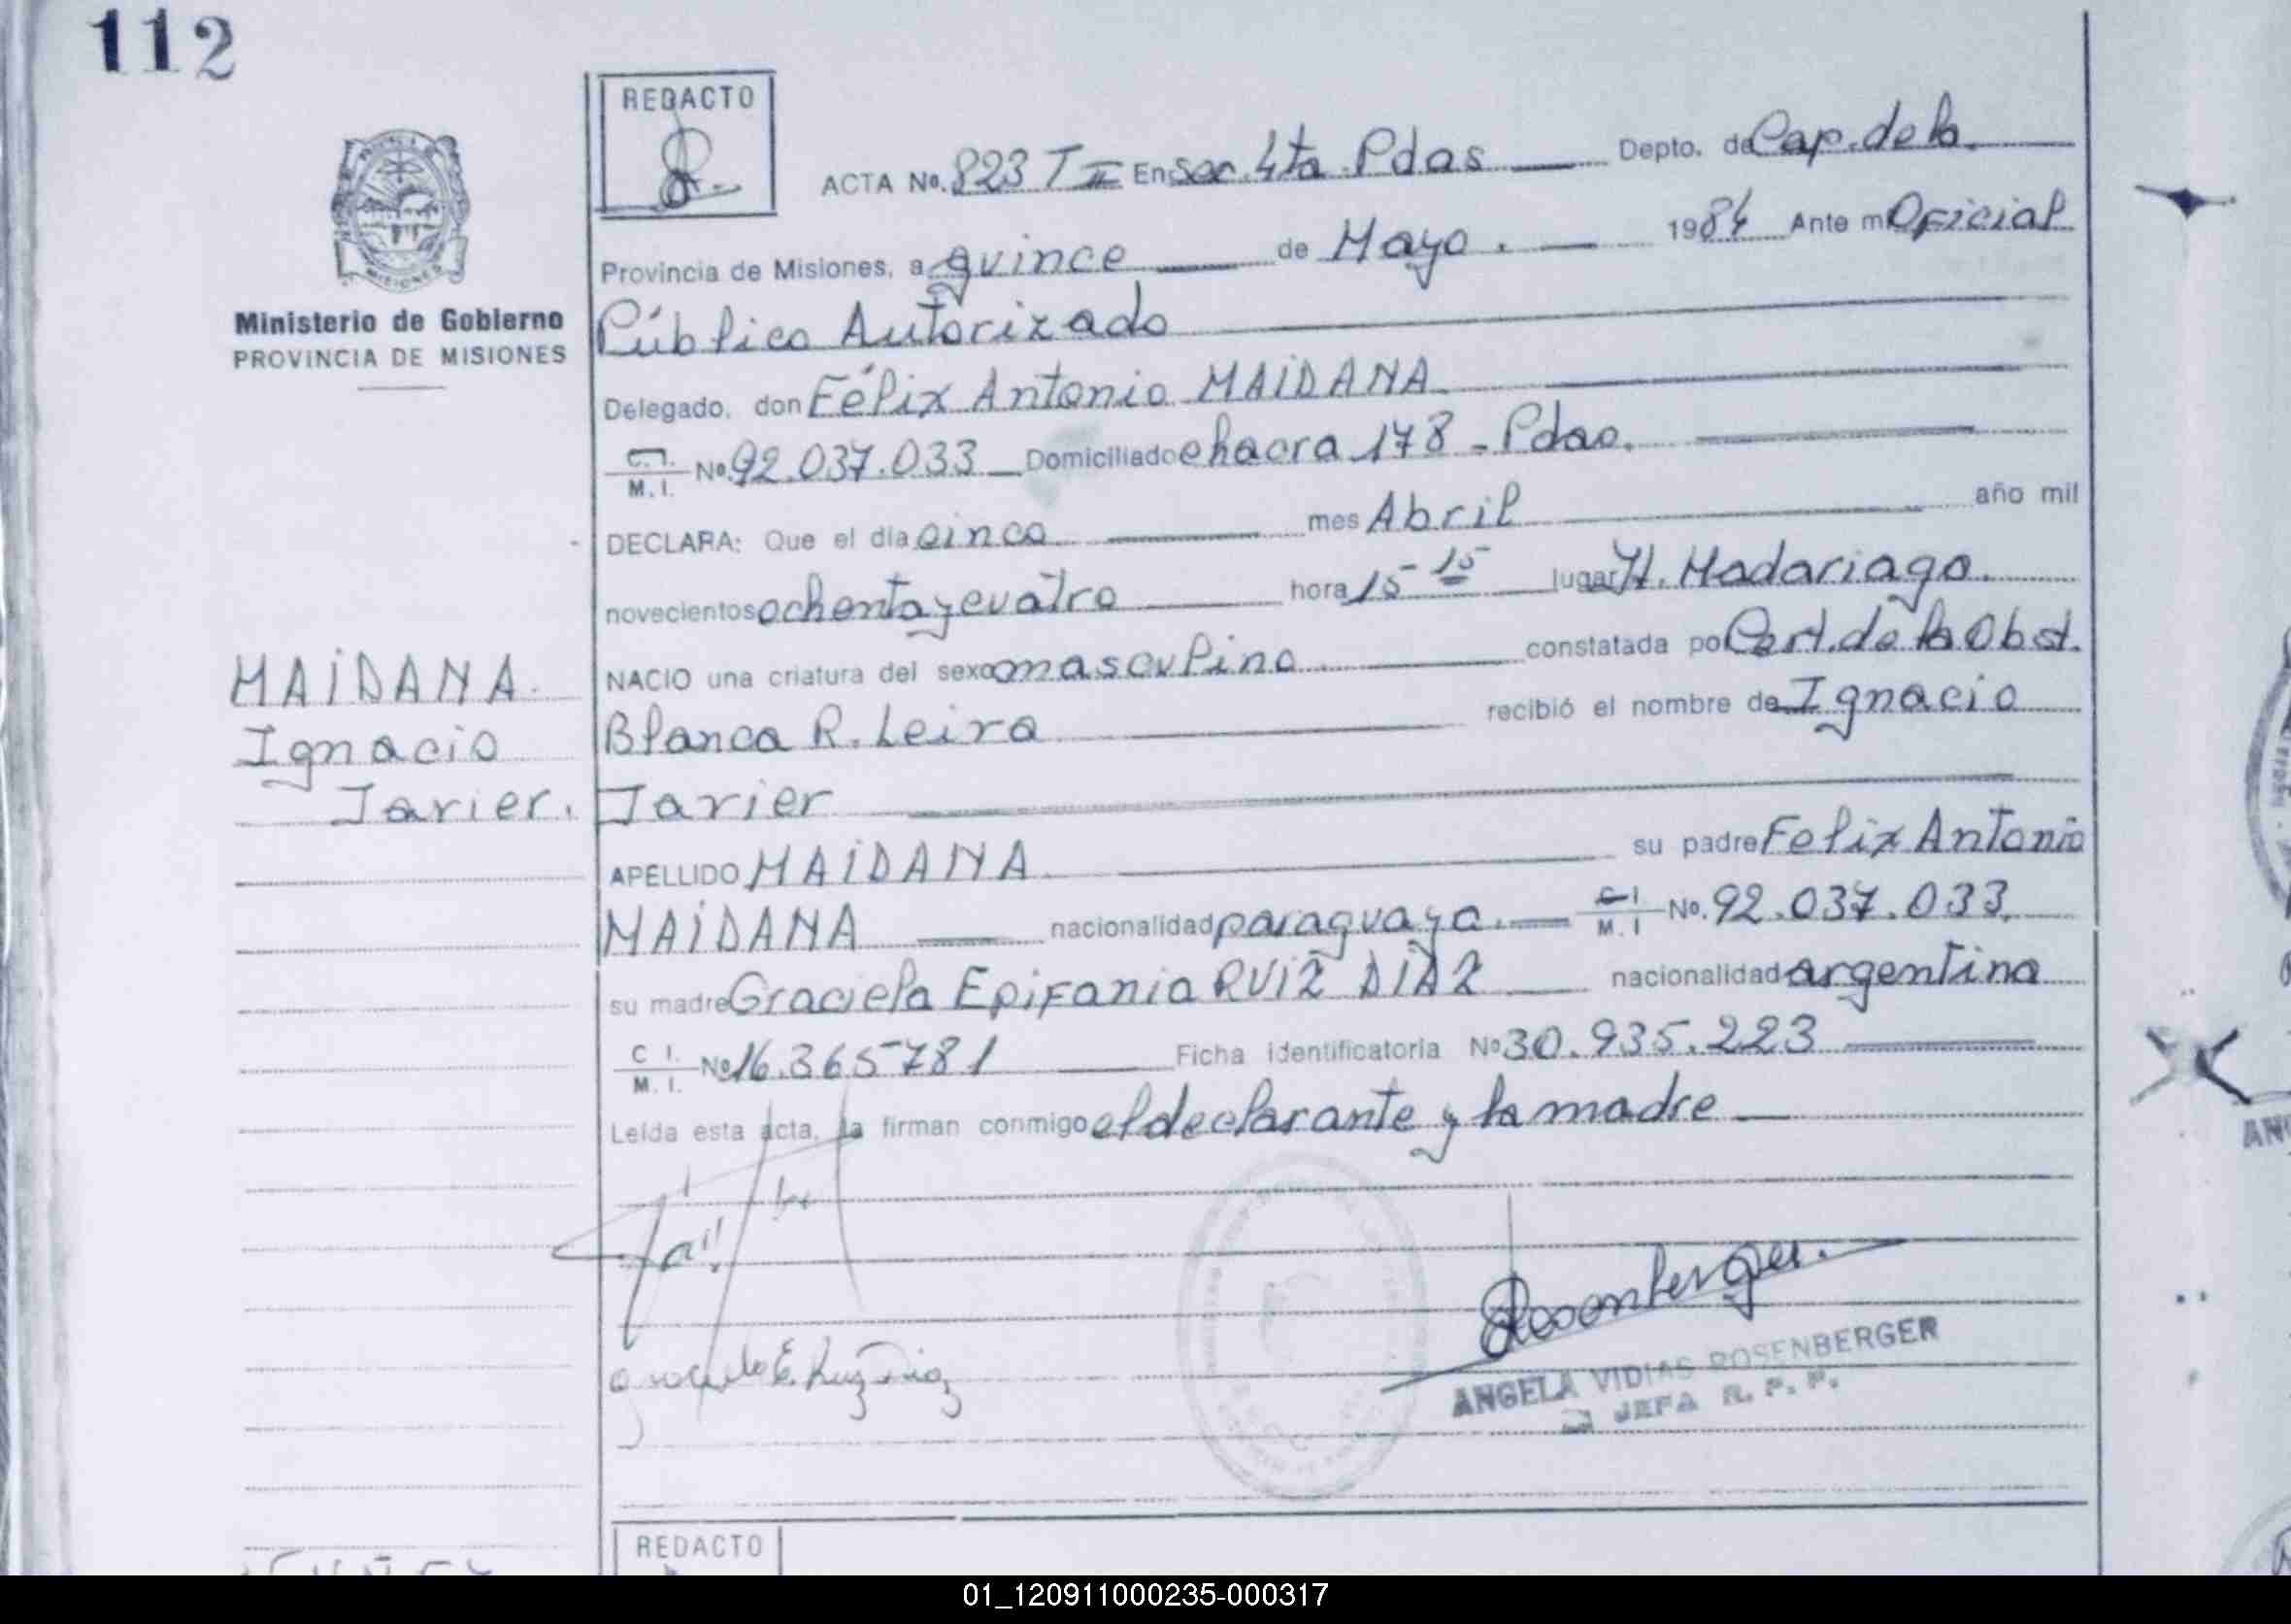 112
REDACTO
ACTA No. 823 T II En Sec. 4ta. Pdas Depto. de Cap. de la
Provincia de Misiones, a quince de Mayo. 1984 Ante mi Oficial
Público Autorizado
Ministerio de Gobierno
PROVINCIA DE MISIONES
Delegado, don Félix Antonio MAIDANA
C.I. M.I. No. 92.037.033 Domiciliado chacra 178 - Pdas.
DECLARA: Que el día cinco mes Abril año mil
novecientos ochenta y cuatro hora 15-15 lugar H. Madariaga.
NACIO una criatura del sexo masculino constatada por Cert. de la Obst.
Blanca R. Leira recibió el nombre de Ignacio
Javier
MAIDANA.
Ignacio
Javier.
APELLIDO MAIDANA su padre Felix Antonio
MAIDANA nacionalidad paraguaya. C.I M.I No. 92.037.033.
su madre Graciela Epifania RUIZ DIAZ nacionalidad argentina
C I. M. I. No 16.365781 Ficha identificatoria No 30.935.223
Leída esta acta, la firman conmigo el declarante y la madre
Rosenberger.
Graciela E. Ruiz Diaz
ANGELA VIDIAS ROSENBERGER
JEFA R. P. P.
REDACTO
01_120911000235-000317